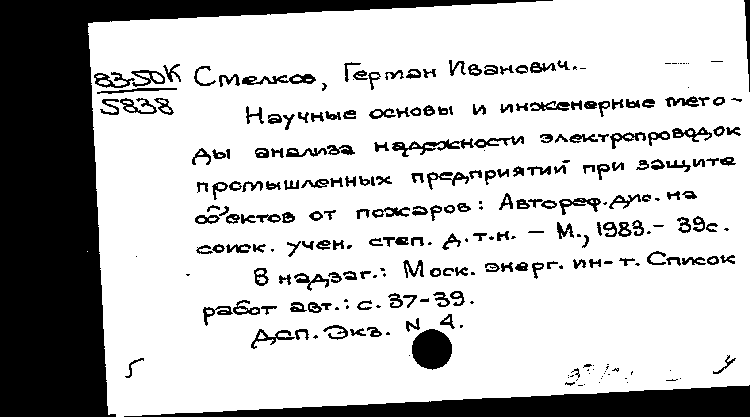 83-50К
5838
Смелков, Герман Иванович.-
Научные основы и инженерные мето-
ды анализа надежности электропроводок
промышленных предприятий при защите
объектов от пожаров: Автореф. дис. на
соиск. учен. степ. д.т.н. – М., 1983.- 39с.
В надзаг.: Моск. энерг. ин-т. Список
работ авт.: с. 37-39.
ДСП. Экз. N 4.
5